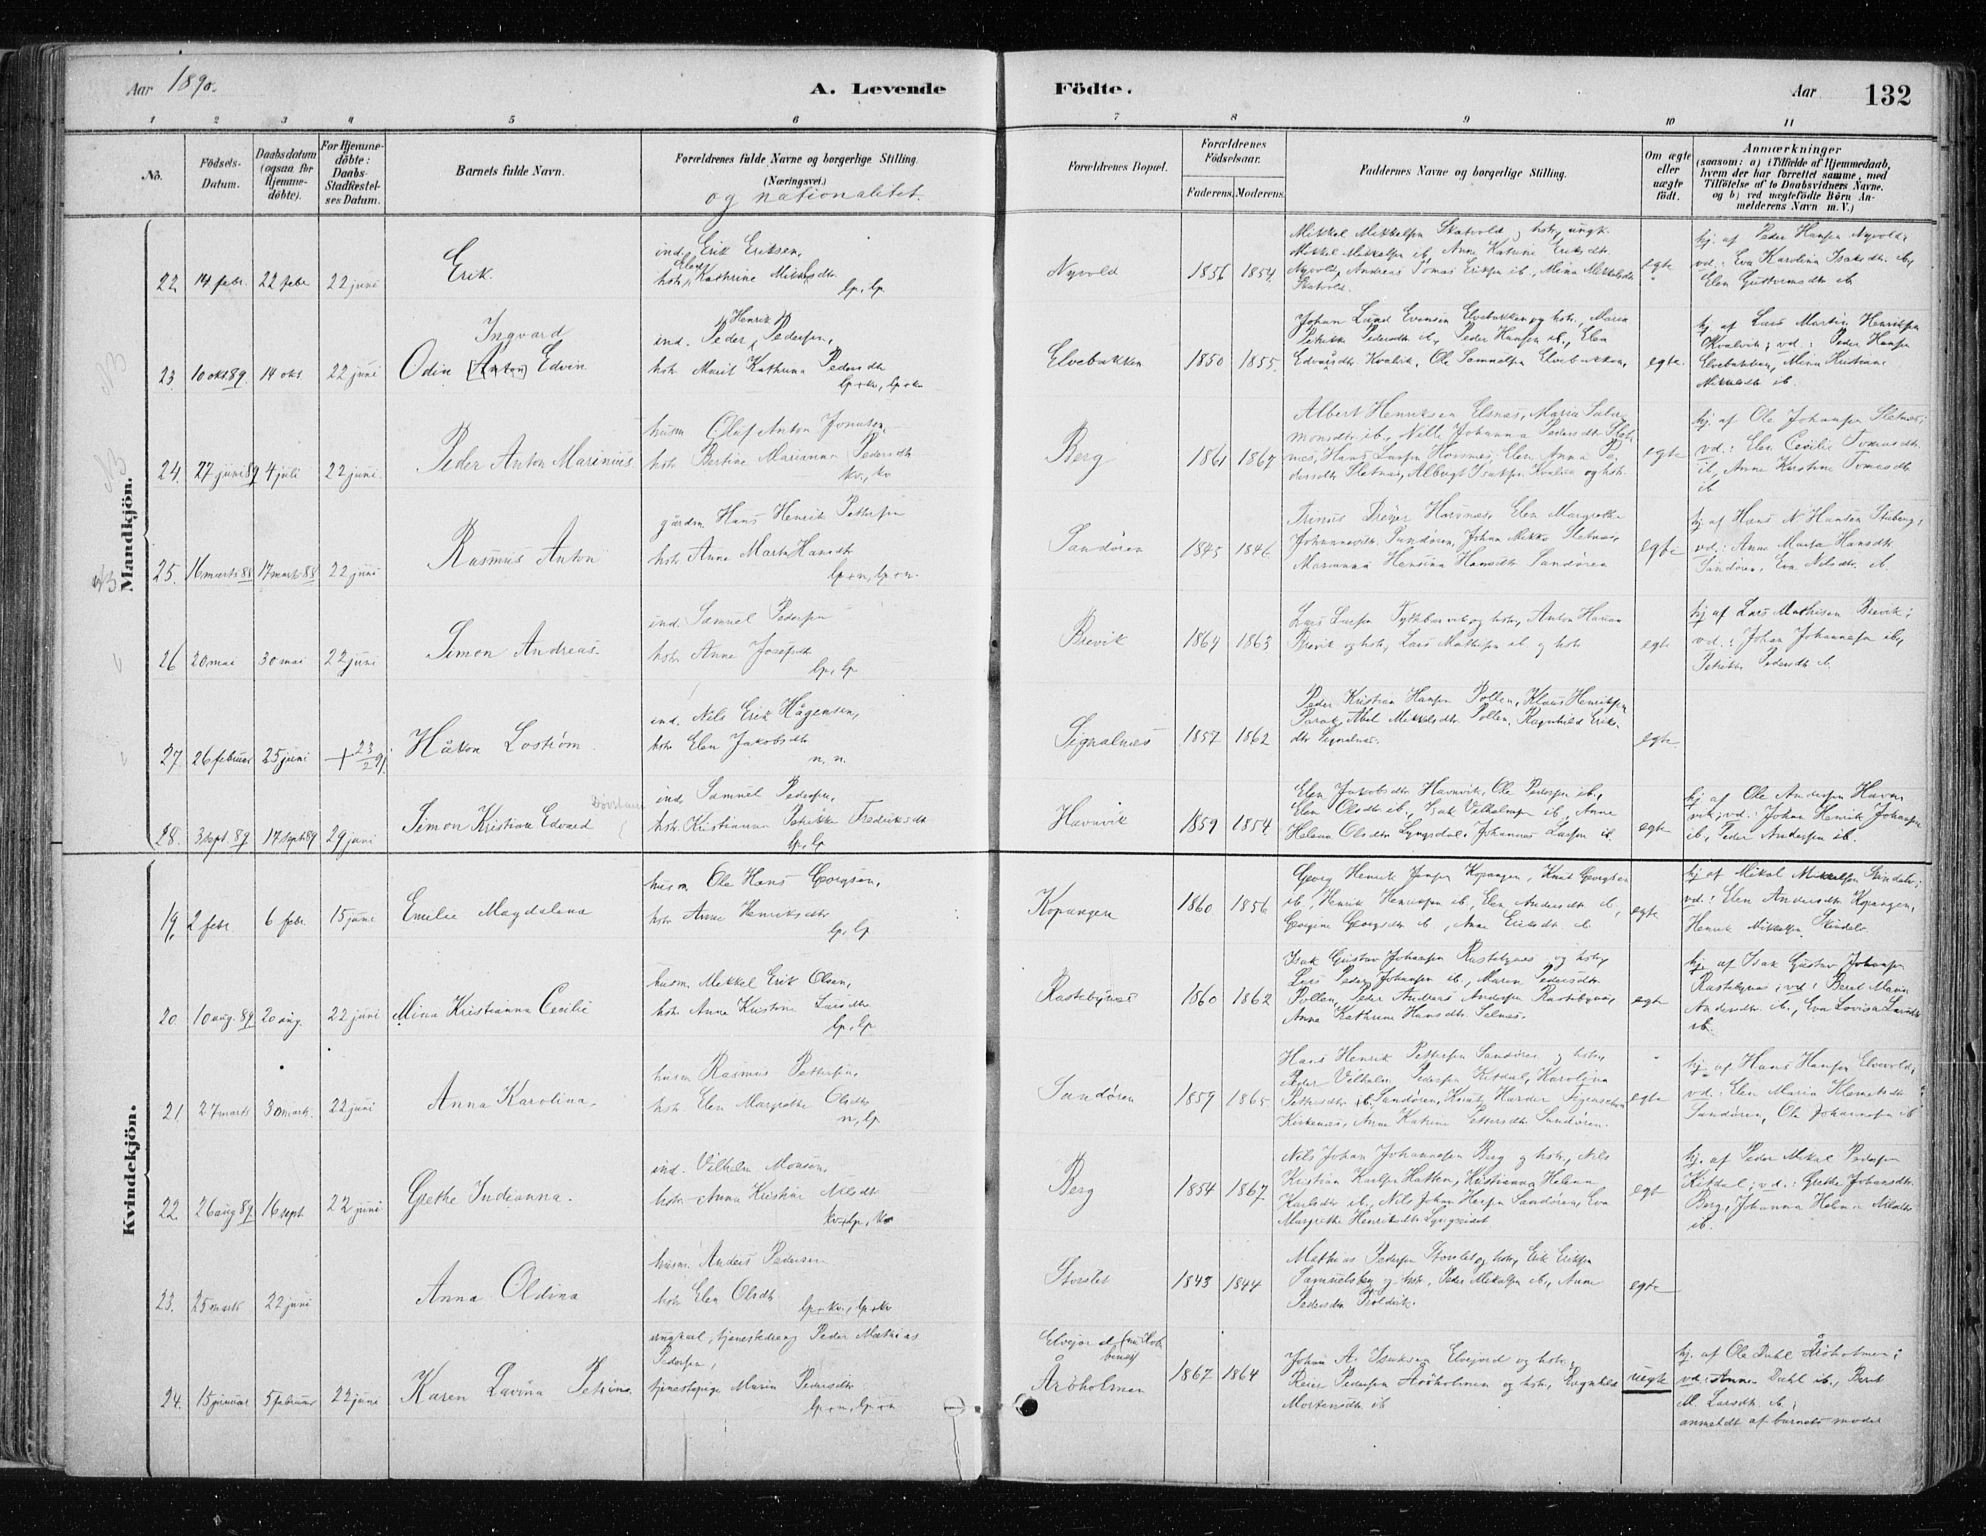 Aar 1890.
A. Levende Födte.
Aar
132
1 2 3 4 5 6 7 8 9 10 11
No.
Födsels-
Datum.
Daabsdatum
(ogsaa for
Hjemme-
döbte).
For Hjemme-
döbte:
Daabs-
Stadfæstel-
ses Datum.
Barnets fulde Navn.
Forældrenes fulde Navne og borgerlige Stilling.
(Næringsvei.)
og nationalitet.
Forældrenes Bopæl.
Forældrenes
Födselsaar.
Faderens. Moderens.
Faddernes Navne og borgerlige Stilling.
Om ægte
eller
uægte
födt.
Anmærkninger
(saasom: a) i Tilfælde af Hjemmedaab,
hvem der har forrettet samme, med
Tilföielse af to Daabsvidners Navne.
og b) ved uægtefödte Börn An-
melderens Navn m. V.)
Mandkjön.
22. 14 febr. 22 febr 22 juni
Erik
ind. Erik Eriksen,
hstr. Elen Kathrine Mikkelsdtr
lp, lp
Nyvold
1856 1854
Mikkel Mikkelsen Skatvold og hstr, ungk.
Mikkel Mikkelsen ib, Anne Katrine Eriksdtr
Nyvold, Andreas Tomas Eriksen ib, Mina Mikkelsdtr
Skatvold.
egte
hj. af Peder Hansen Nyvold;
vd.: Eva Karolina Isaksdtr ib,
Elen Guttormsdtr ib
23. 10 okt 89 14 okt 22 juni
Ingvard
Odin [Anton] Edvin
ind. Peder Henrik Pedersen,
hstr Marit Kathrina Pedersdtr
lp+kv, lp+kv
Elvebakken
1850 1855
Johan Lund Evensen Elvebakken og hstr, Maria
Petrikke Pedersdtr ib, Peder Hansen ib, Elen
Edvardsdtr Kvalvik, Ole Samuelsen Elvebakken,
egte
hj. af Lars Martin Henriksen
Kvalvik; vd.: Peder Hansen
Elvebakken, Mina Kristiane
Mikkelsdtr ib.
24. 27 juni 89 4 juli 22 juni
Peder Anton Marinius
husm Olaf Anton Jonassen,
hstr Bertine Marianna Pedersdtr
kv, kv
Berg
1861 1867
Albert Henriksen Elsnæs, Maria Salo-
monsdtr ib, Nille Johanna Pedersdtr Slet-
næs, Hans Larsen Horsnæs, Elen Anna Pe-
dersdtr Sletnæs, Albrigt Isaksen Kvalvik og hstr
egte
hj. af Ole Johansen Sletnæs;
vd.: Elen Cecilie Tomasdtr
ib, Anne Kirstine Tomasdtr
ib
25. 16 marts 88 17 marts 88 22 juni
Rasmus Anton
gårdm Hans Henrik Pettersen
hstr Anne Marta Hansdtr
lp+n, lp+n.
Sandøren
1845 1846
Trinus Dreyer Horsnæs, Elen Margrethe
Johannesdtr Sandøren, Johan Mikko Sletnæs,
Marianna Hensina Hansdtr Sandøren
egte
hj. af Hans N Hansen Stuberg;
vd.: Anne Marta Hansdtr
Sandøren, Eva Nilsdtr ib.
26 20 mai 30 mai 22 juni
Simon Andreas.
ind. Samuel Pedersen
hstr Anne Josefsdtr
lp, lp
Brevik
1864 1863
Lars Larsen og hstr, Anton Hansen
Brevik og hstr, Lars Mathisen ib og hstr
egte
hj af Lars Mathisen Brevik;
vd.: Johan Johannesen ib,
Petrikke Pedersdtr ib.
27. 26 februar 25 juni + 23/2 91.
Håkon Lostrøm.
ind. Nils Erik Hågensen,
hstr Elen Jakobsdtr
n, n.
Signalnæs
1857 1862
Peder Kristian Hansen Pollen, Klaus Henriksen
Parak, Abel Mikkelsdtr Pollen, Ragnhild Eriks-
dtr Signalnæs.
egte
28. 3 sept. 89 17 sept 89 29 juni
Simon Kristian Edvard
ind. Samuel Pedersen,
hstr. Kristianna Petrikke Fredriksdtr
lp, lp
Havnvik
1859 1854
Elen Jakobsdtr Havnvik, Ole Pedersen ib,
Elen Olsdtr ib, Isak Vilhelmsen ib, Anne
Helena Olsdtr Lyngsdal, Johannes Larsen ib.
egte
hj af Ole Andersen Havn-
vik; vd.: Johan Henrik Johansen
ib, Peder Andersen ib.
Kvindekjön.
19. 2 febr 6 febr 15 juni
Emilie Magdalena
husm Ole Hans Georgsen,
hstr Anne Henriksdtr
lp, lp
Kopangen
1860 1856
Georg Henrik Jensen Kopangen, Knut Georgsen
ib, Henrik Henriksen ib, Elen Andersdtr ib,
Georgine Georgsdtr ib, Anne Eriksdtr ib
egte
hj af Mikal Mikkelsen Skindelv;
vd.: Elen Andersdtr Kopangen,
Henrik Mikkelsen Skindelv
20. 10 aug. 89 20 aug. 22 juni
Mina Kristianna Cecilie
husm Mikkel Erik Olsen,
hstr Anne Kirstine Larsdtr
lp, lp
Rastebynæs
1860 1862
Isak Gustav Johansen Rastebynæs og hstr,
Lars Peder Johansen ib, Maren Pedersdtr
Pollen, Peder Andreas Andersen Rastebynæs,
Anna Kathrine Hansdtr Selnæs.
egte
hj. af Isak Gustav Johansen
Rastebynæs; vd: Beret Maria
Andersdtr ib., Eva Lovisa Larsdtr
ib.
21. 27 marts 30 marts. 22 juni
Anna Karolina.
husm Rasmus Pettersen,
hstr. Elen Margrethe Olsdtr
n, lp
Sandøren
1859 1865
Hans Henrik Pettersen Sandøren og hstr,
Peder Vilhelm Pedersen Kitdal, Karolina
Pettersdtr Sandøren, Knut Harder Figenschou
Kirkenæs, Anne Katrine Pettersdtr Sandøren.
egte
hj. af Hans Hansen Elvevold;
vd.: Elen Maria Klemetsdtr
Sandøren, Ole Johannesen ib
22. 26 aug 89 16 sept 22 juni
Grethe Indianna.
ind. Vilhelm Monsen,
hstr Anna Kristine Nilsdtr
kv+lp, kv
Berg
1854 1867
Nils Johan Johannesen Berg og hstr, Nils
Kristian Karlsen Hatten, Kristianna Helena
Karlsdtr ib, Nils Johan Hansen Sandøren, Eva
Margrethe Henriksdtr Lyngseidet
egte
hj. af Peder Mikal Pedersen
Kitdal; vd.: Grethe Johansdtr
Berg, Johanna Helena Nilsdtr
ib.
23. 25 marts 22 juni
Anna Oldina
husm Anders Pedersen
hstr Elen Olsdtr
lp+kv, lp+kv
Storslet
1843 1844
Mathias Pedersen Storslet og hstr, Erik Eriksen
Samuelsberg og hstr, Peder Mikalsen ib, Anne
Pedersdtr Troldvik.
egte
24. 15 januar 5 februar 22 juni
Karen Lavina Petrina
ungkarl, tjenestedreng Peder Mathias
Pedersen,
tjenestepige Maria Pedersdtr
lp+n, lp+n
Elvejord
Årøholmen
1867 1864
Johan A. Isaksen Elvejord og hstr,
Reier Pedersen Årøholmen og hstr, Ragnhild
Mortensdtr ib
uegte
hj. af Ole Dahl Årøholmen;
vd: Anne Dahl ib., Beret
M. Larsdtr ib;
anmeldt af barnets moder